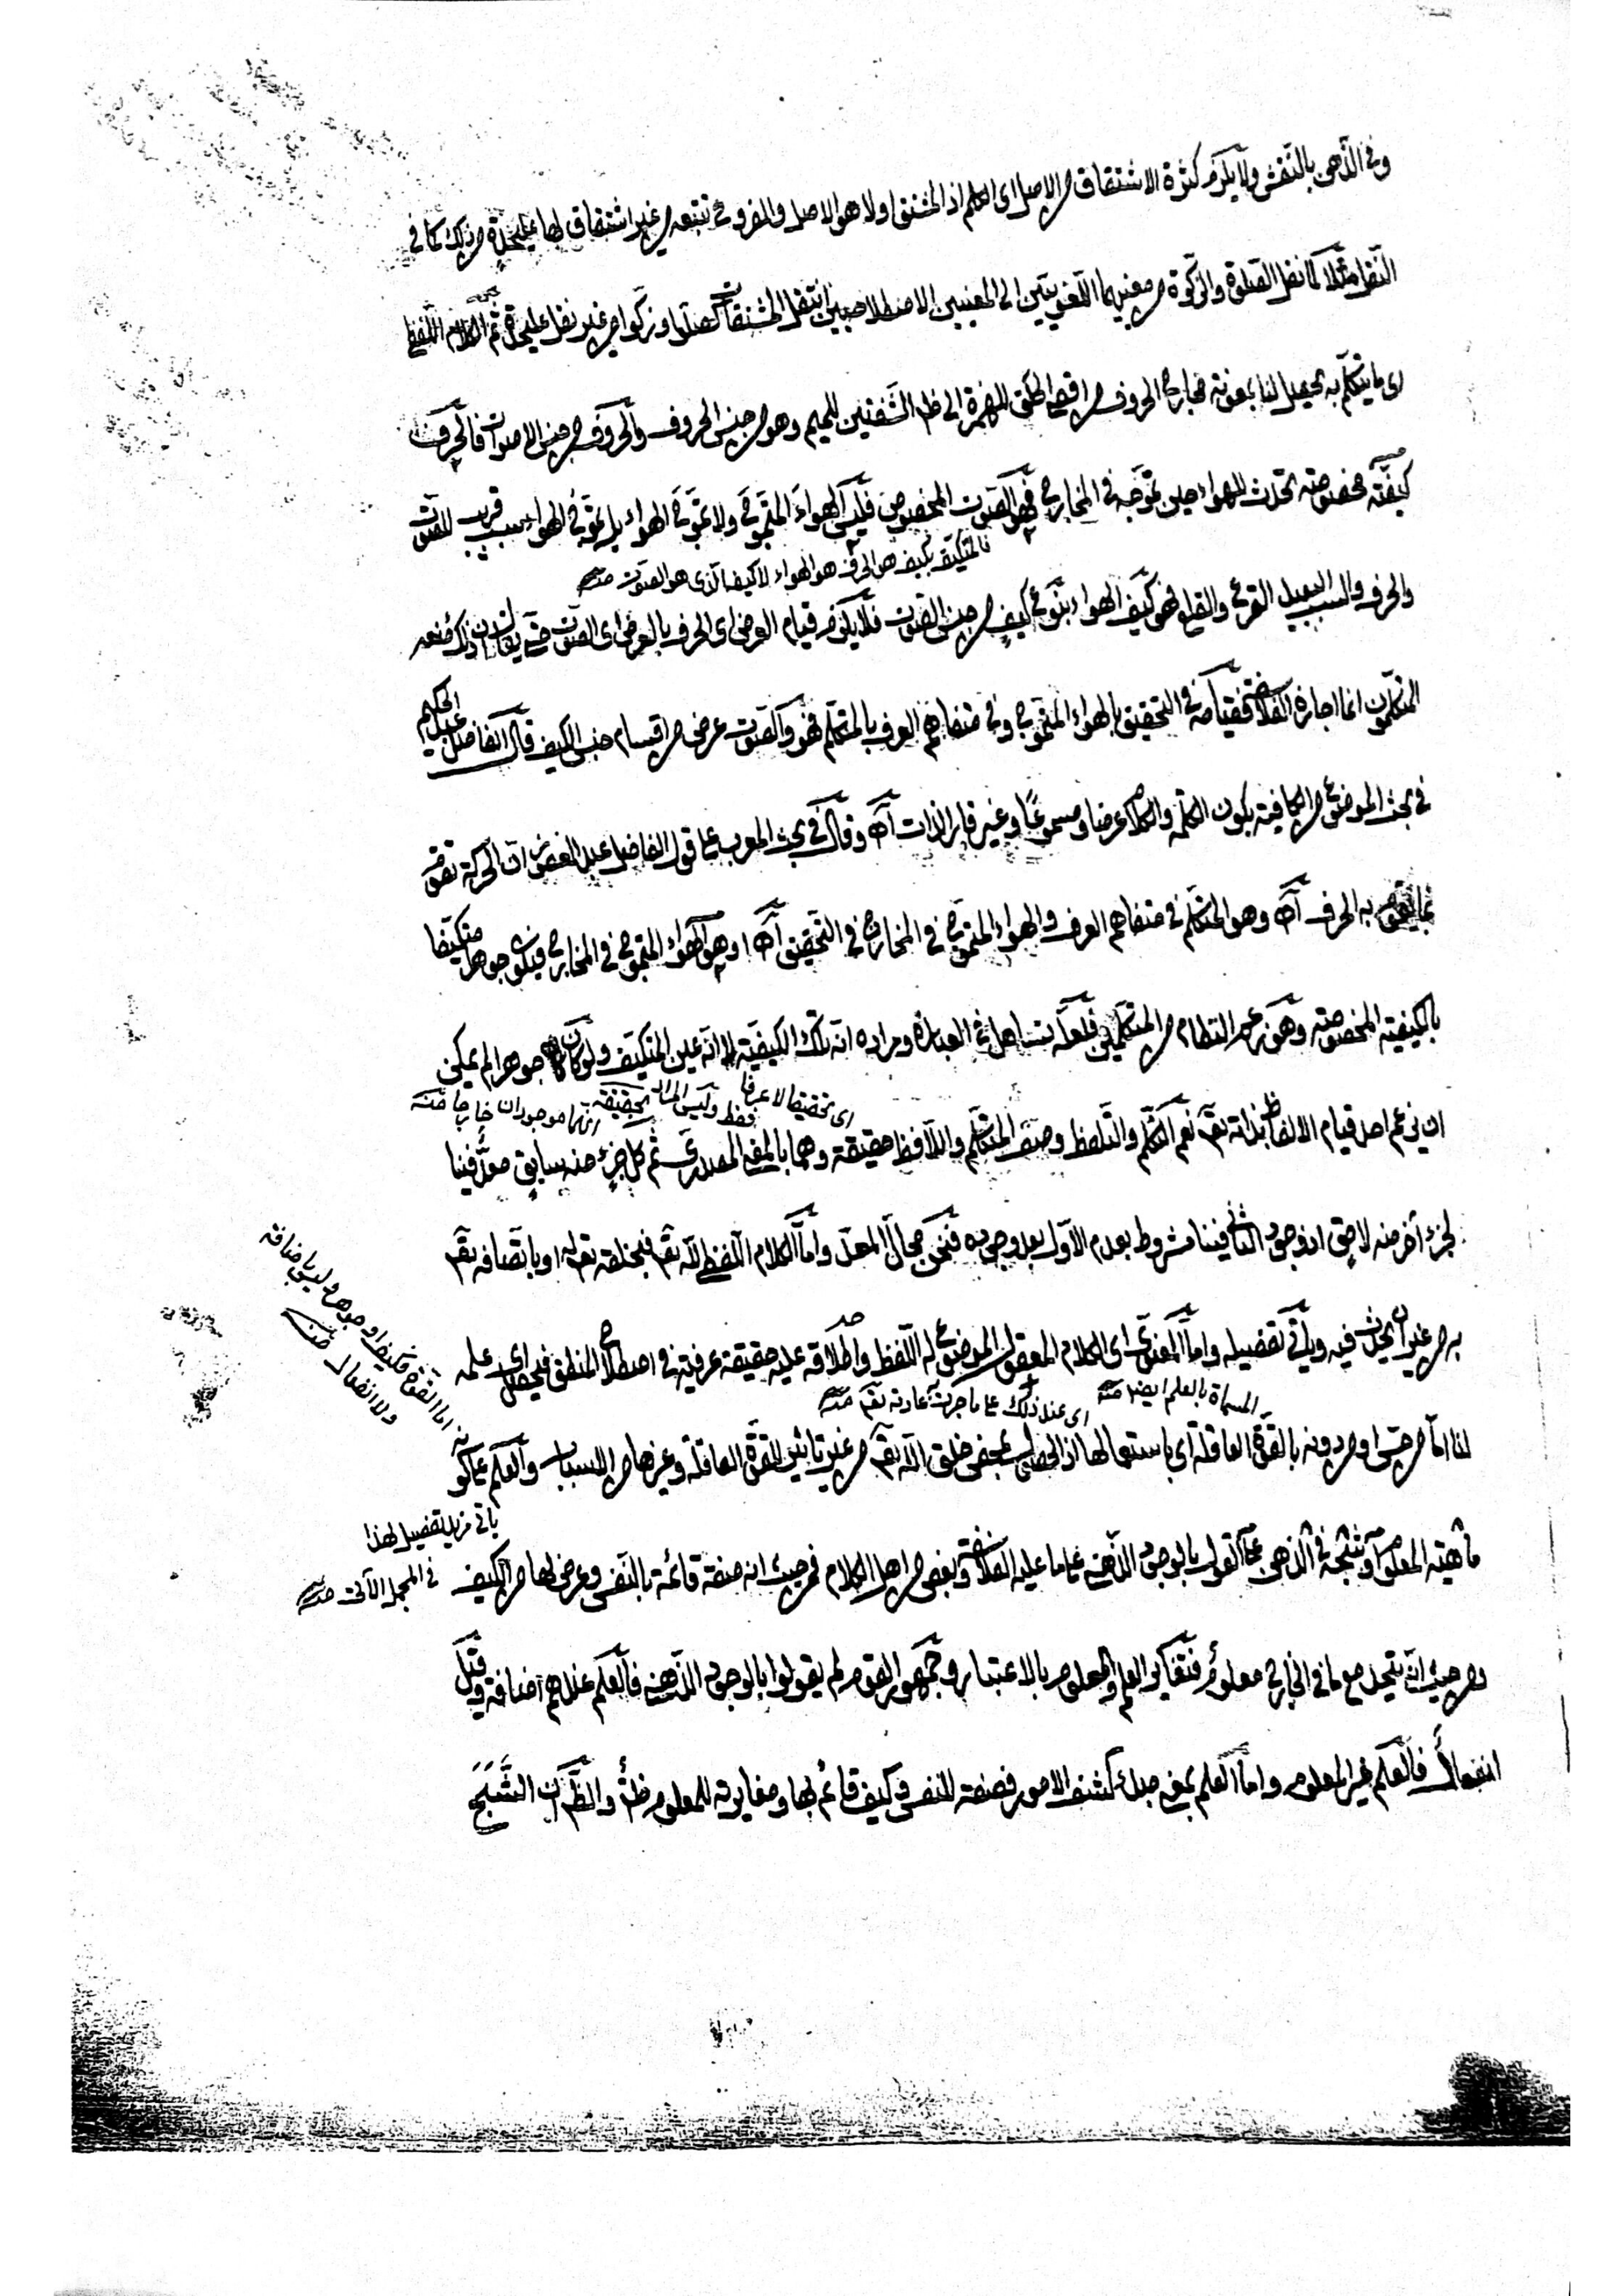 وفى الذهن بالنقش ولا يلزم كثرة الاشتقاق من الاصل اى العلم اذ المشتق اولا هو الاصل والفروع تتبعه من غير اشتقاق لها عليحدة من ذلك كما فى
النقل مثلا لما نقل الصلوة والزكوة من معنييهما اللغويين الى المعنيين الاصطلاحيين انتقل المشتقات كصلوا وزكوا من غير نقل عليحدة ثم الكلام اللفظى
اى ما يتكلم به يحصل لنا بمعونة مخارج الحروف من اقصى الحلق للهمزة الى ظاهر الشفتين للميم وهو من جنس الحروف والحروف من جنس الاصوات فالحرف
كيفية مخصوصة تحدث للهواء حين تموجه فى المخارج فهو الصوت المخصوص فليس الهواء المتموج ولا تموج الهواء بل تموج الهواء سبب قريب للصوت
فالمتكيف بكيف هو الحرف هو الهواء لا كيفه الذى هو الصوت منه
والحرف والسبب البعيد القرع والقلع فهو كيف الهواء بنوع كيف من جنس الصوت فلا يلزم قيام العرض اى الحرف بالعرض اى الصوت حتى يقال ان ذلك منعه
المتكلمون انما اجازه الفلاسفة فقيامه فى التحقيق بالهواء المتموج وفى متفاهم العرف بالمتكلم فهو والصوت عرض من اقسام جنس الكيف قال الفاضل عبد الحكيم
فى بحث الموضوع من الكافية بكون الكلمة والكلام عرضا ومسموعا وغير قار الذات اه وقال فى بحث المعرب على قول الفاضل عبد الغفور ان الحركة تقوم
بما يقوم به الحرف اه وهو المتكلم فى متفاهم العرف والهواء المتموج فى المخارج فى التحقيق اه او هو الهواء المتموج فى المخارج فيكون جوهرا متكيفا
بالكيفية المخصوصة وهو زعم النظام من المتكلمين فلعله تساهل فى العبارة ومراده انه تلك الكيفية لا انه عين المتكيف ولو كان جوهرا لم يمكن
اى تحقيقا لا عرفا فقط وليس المراد بحقيقة انهما موجودان خارجا منه
ان يزعم احد قيام الالفاظ بذاته تعالى نعم التكلم والتلفظ وصف المتكلم واللافظ حقيقة وهما بالمعنى المصدرى ثم كل جزء منه سابق معد فينا
لجزء آخر منه لاحق اذ وجود الثانى فينا مشروط بعدم الاول بعد وجوده فنحن مجال المعد واما الكلام اللفظى لله تعالى فبخلقه تعالى او باتصافه تعالى
به من غير ان يحدث فيه ويأتى تفصيله واما المعنوى اى الكلام المعقول الموضوع له اللفظ واطلاقه عليه حقيقة عرفية فى اصطلاح المنطق فيحصل اى علمه
المسماة بالعلم ايضا منه
اى عند ذلك على ما جرت عادته تعالى منه
لنا اما من حس او من دونه بالقوة العاقلة اى باستعمالها اذ الحصول بمحض خلق الله تعالى من غير تأثير للقوة العاقلة وغيرها من الاسباب والعلم على كونه
اما القوة فكيف او جوهر وليس باضافة
ولا انفعال منه
ماهية المعلوم او شبحه فى الذهن على القول بالوجود الذهنى على ما عليه الفلاسفة وبعض من اهل الكلام فمن حيث انه صفة قائمة بالنفس وعرض لها من الكيف
يأتى مزيد تفصيل لهذا
فى المجمل الآتى منه
ومن حيث انه يتحد مع ما فى الخارج معلوم فتغاير العلم والمعلوم بالاعتبار وجمهور القوم لم يقولوا بالوجود الذهنى فالعلم عندهم اضافة وقيل
انفعال فالعلم غير المعلوم واما العلم بمعنى مبدأ كشف الامور فصفة للنفس وكيف قائم بها ومغايرته للمعلوم ظ والظ ان الشبح